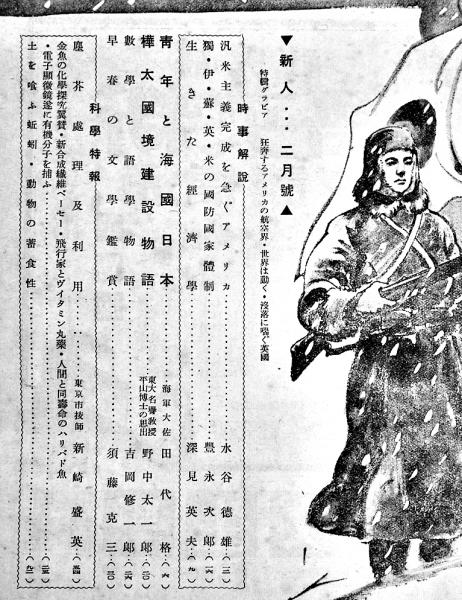 ▼新人…二月號▲
特輯グラビア 狂奔するアメリカの航空界・世界は動く・沒落に喘ぐ英國
時事解說
汎米主義完成を急ぐアメリカ……水谷德雄…(三)
獨・伊・蘇・英・米の國防國家體制……豐永次郞…(一六)
生きた經濟學……深見英夫…(九)
靑年と海國日本……海軍大佐 田代格…(六)
樺太國境建設物語……東大名譽敎授平山博士の思出 野中太一郞…(二〇)
數學と語學物語……吉岡修一郞…(二六)
早春の文學鑑賞……須藤克三…(三〇)
科學特報
塵芥處理及利用……東京市技師 新崎盛英…(四)
金魚の化學探究翼贊・新合成纖維ペーセー・飛行家とヴイタミン丸藥・人間と同壽命のハリバド魚
・電子顯微鏡遂に有機分子を捕ふ……(三)
土を喰ふ蚯蚓・動物の蓄食性……(三)